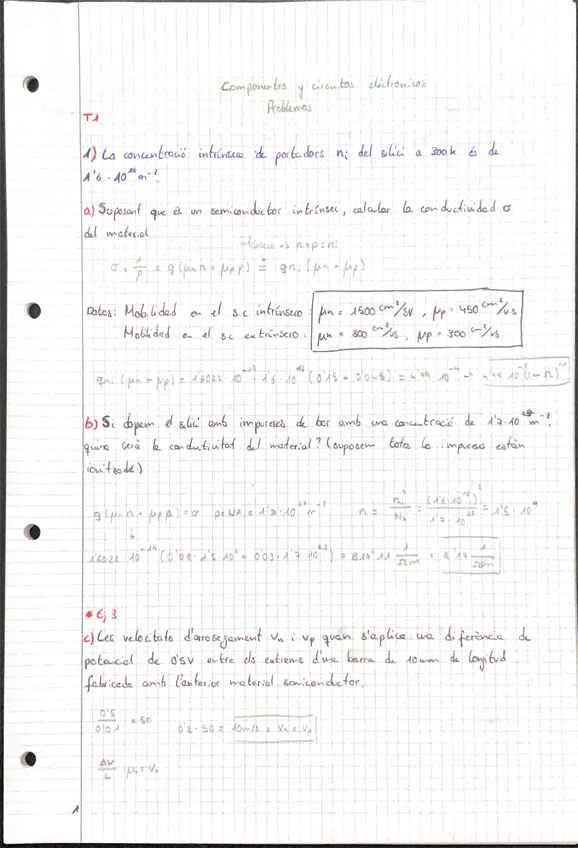 Componentes y circuitos electrónicos
Problemas
T1
1) La concentració intrínseca de portadors ni del silici a 300k és de
1'6 · 10^16 m^-3.
a) Suposant que és un semiconductor intrínsec, calcular la conductividad σ
del material
intrínseco → n=p=ni
σ = 1/ρ = q (μn n + μp p) = q ni (μn + μp)
Datos: Mobilidad en el s.c intrínseco: μn = 1500 cm²/sv , μp = 450 cm²/vs
Mobilidad en el sc extrínseco: μn = 800 cm²/vs , μp = 300 cm²/vs
qni (μn + μp) = 1'6022 · 10^-19 · 1'6 · 10^16 (0'15 + 0'045) = 4'99 · 10^-4
b) Si dopem el silici amb impureses de bor amb una concentració de 1'7·10^23 m^-3,
quina serà la conductivitat del material? (suposem totes les impureses estàn
ionitzades)
q (μn n + μp p) = σ p≈NA = 1'7 · 10^23 m^-3 n = ni²/NA = (1'6·10^16)²/1'7·10^23 = 1'5 · 10^9
1'6022 · 10^-19 (0'08 · 1'5 10^9 + 0'03 · 1'7 10^23) = 817'11 1/Ωm = 8'17 1/Ωcm
* Ej 3
c) Les velocitats d'arrosegament Vn i Vp quan s'aplica una diferència de
potencial de 0'5V entre els extrems d'una barra de 10mm de longitud
fabricada amb l'anterior material semiconductor.
0'5/0'01 = 50 0'2 · 50 = 10m/s = Vn = Vp
ΔV/L · μn = Vn
1